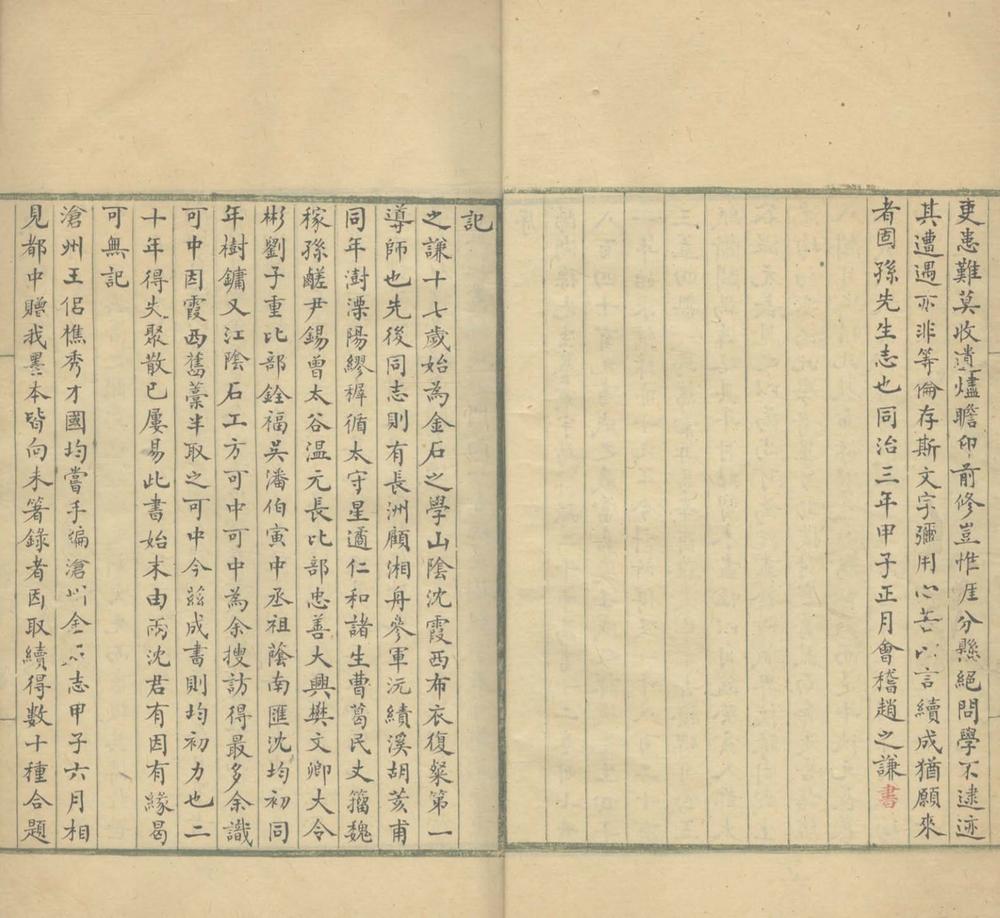 吏患難莫收遺燼瞻卬前修豈惟厓分懸絕問學不逮迹
其遭遇亦非等倫存斯文字彌用心苦以言續成猶願來
者固孫先生志也同治三年甲子正月會稽趙之謙書
記
之謙十七歲始為金石之學山陰沈霞西布衣復粲第一
導師也先後同志則有長洲顧湘舟參軍沅績溪胡荄甫
同年澍溧陽繆稺循太守星遹仁和諸生曹葛民丈籀魏
稼孫鹺尹錫曾太谷溫元長比部忠善大興樊文卿大令
彬劉子重比部銓福吳潘伯寅中丞祖蔭南匯沈均初同
年樹鏞又江陰石工方可中可中為余搜訪得最多余識
可中因霞西舊藁半取之可中今茲成書則均初力也二
十年得失聚散已屢易此書始末由兩沈君有因有緣曷
可無記
滄州王侶樵秀才國均嘗手編滄州金石志甲子六月相
見都中贈我墨本皆向未箸錄者因取續得數十種合題